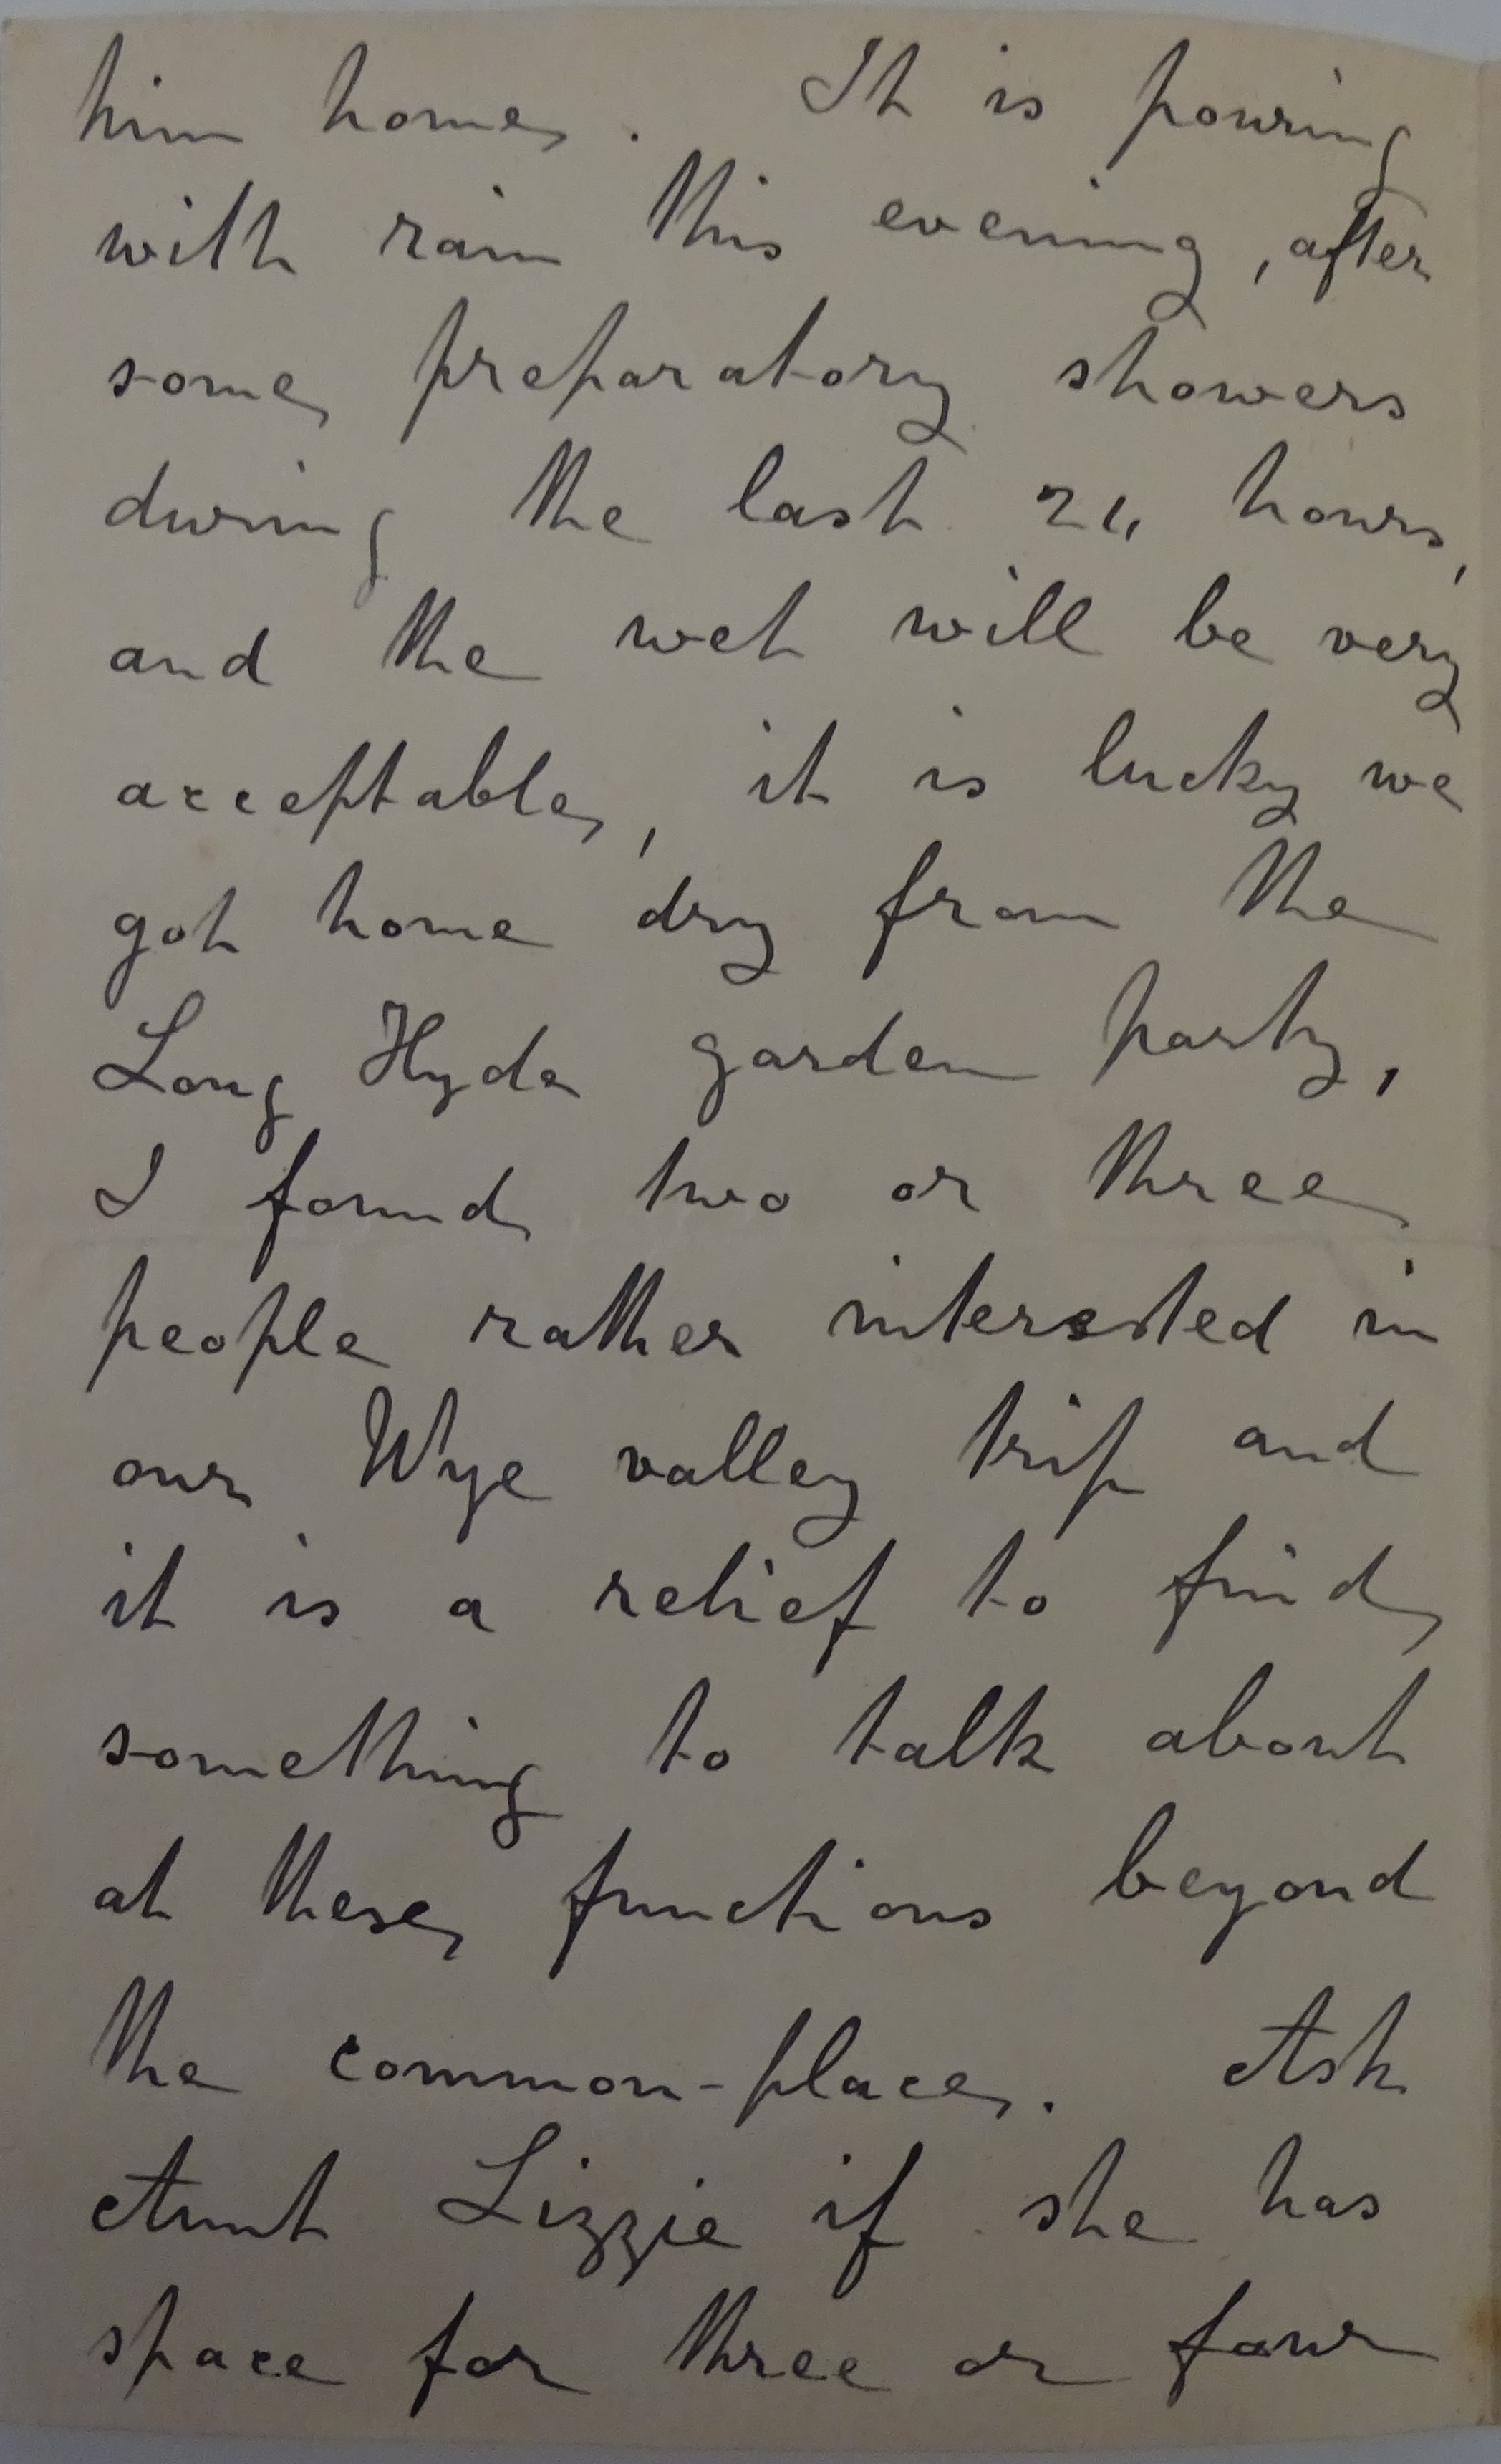 him home. It is pouring
with rain this evening, after
some preparatory showers
during the last 24 hours,
and the wet will be very
acceptable, it is lucky we
got home dry from the
Long Hyde garden party,
I found two or three
people rather interested in
our Wye valley trip and
it is a relief to find
something to talk about
at these functions beyond
the common-place. Ask
Aunt Lizzie if she has
space for three or four